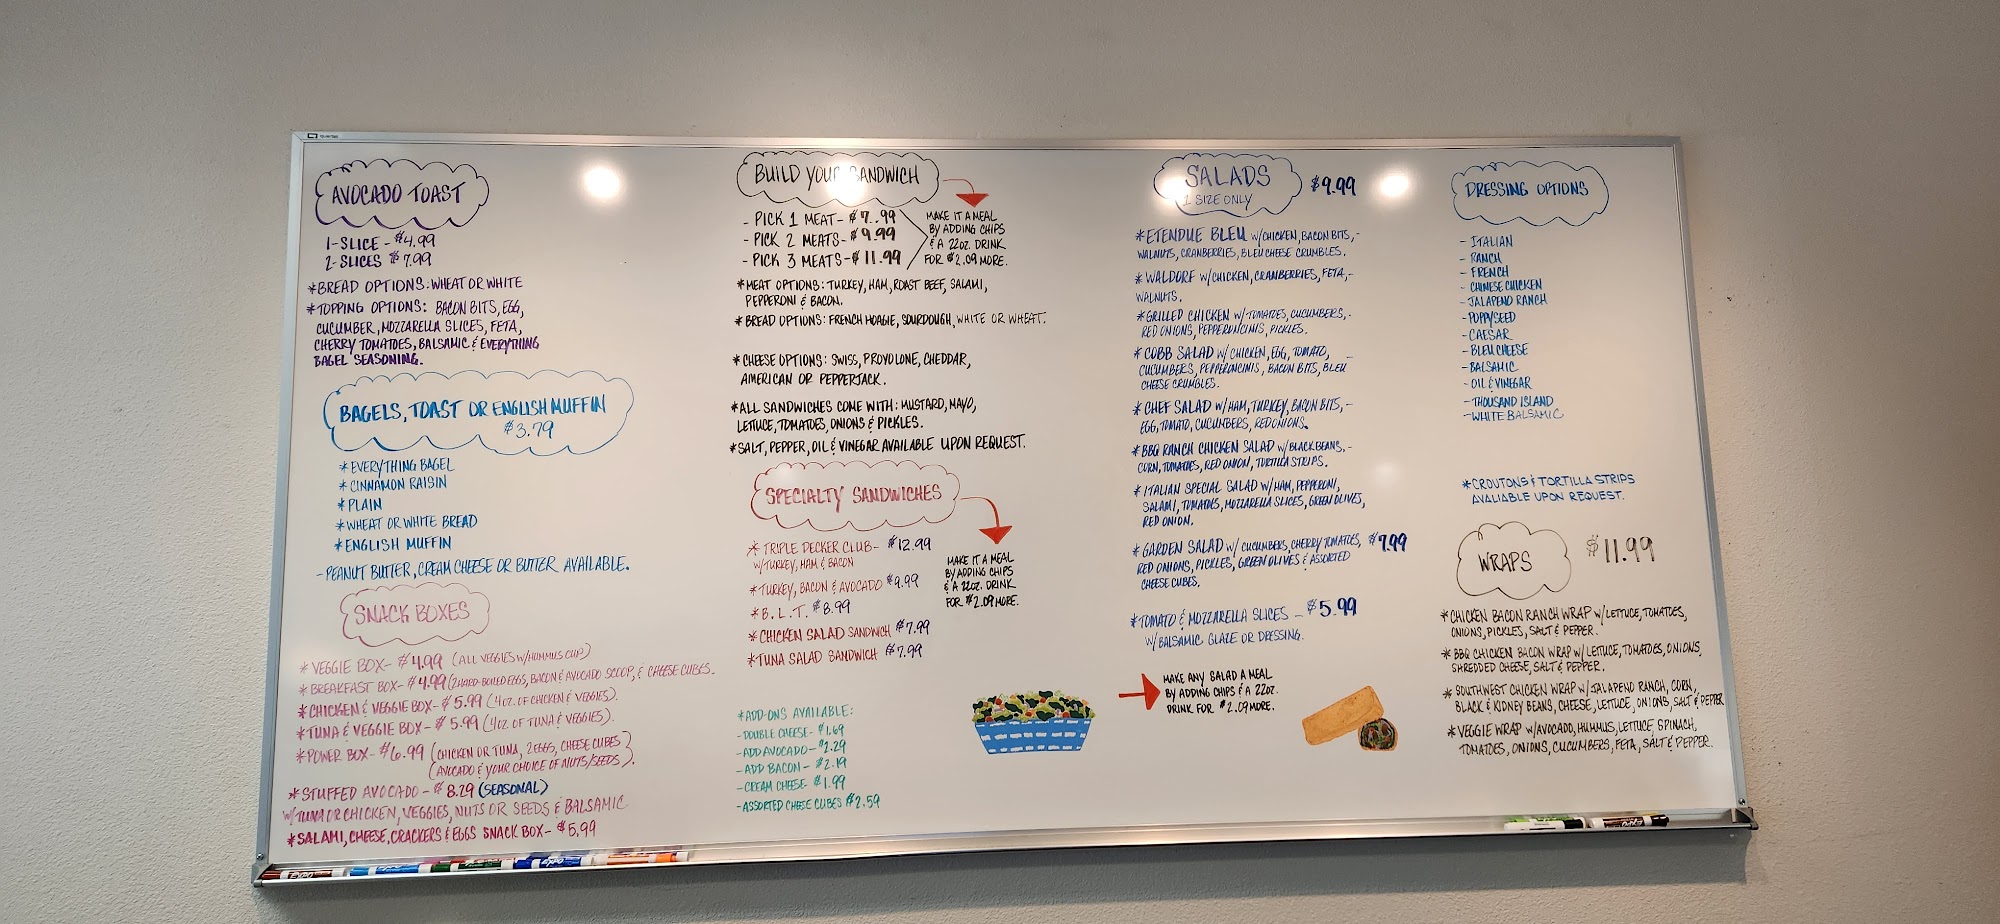 AVOCADO TOAST
1-SLICE - $4.99
2-SLICES $7.99
*BREAD OPTIONS: WHEAT OR WHITE
*TOPPING OPTIONS: BACON BITS, EGG,
CUCUMBER, MOZZARELLA SLICES, FETA,
CHERRY TOMATOES, BALSAMIC & EVERYTHING
BAGEL SEASONING.
BAGELS, TOAST OR ENGLISH MUFFIN
$3.79
*EVERYTHING BAGEL
*CINNAMON RAISIN
*PLAIN
*WHEAT OR WHITE BREAD
*ENGLISH MUFFIN
-PEANUT BUTTER, CREAM CHEESE OR BUTTER AVAILABLE.
SNACK BOXES
*VEGGIE BOX- $4.99 (ALL VEGGIES W/HUMMUS CUP)
*BREAKFAST BOX- $4.99 (2 HARD-BOILED EGGS, BACON & AVOCADO SCOOP, & CHEESE CUBES.
*CHICKEN & VEGGIE BOX- $5.99 (4OZ. OF CHICKEN & VEGGIES).
*TUNA & VEGGIE BOX- $5.99 (4OZ. OF TUNA & VEGGIES).
*POWER BOX- $6.99 (CHICKEN OR TUNA, 2EGGS, CHEESE CUBES)
(AVOCADO & YOUR CHOICE OF NUTS/SEEDS).
*STUFFED AVOCADO - $8.29 (SEASONAL)
W/TUNA OR CHICKEN, VEGGIES, NUTS OR SEEDS & BALSAMIC
*SALAMI, CHEESE, CRACKERS & EGGS SNACK BOX- $5.99
BUILD YOUR SANDWICH
- PICK 1 MEAT- $7.99
- PICK 2 MEATS- $9.99
- PICK 3 MEATS- $11.99
MAKE IT A MEAL
BY ADDING CHIPS
& A 22OZ. DRINK
FOR $2.09 MORE.
*MEAT OPTIONS: TURKEY, HAM, ROAST BEEF, SALAMI,
PEPPERONI & BACON.
*BREAD OPTIONS: FRENCH HOAGIE, SOURDOUGH, WHITE OR WHEAT.
*CHEESE OPTIONS: SWISS, PROVOLONE, CHEDDAR,
AMERICAN OR PEPPERJACK.
*ALL SANDWICHES COME WITH: MUSTARD, MAYO,
LETTUCE, TOMATOES, ONIONS & PICKLES.
*SALT, PEPPER, OIL & VINEGAR AVAILABLE UPON REQUEST.
SPECIALTY SANDWICHES
*TRIPLE DECKER CLUB- $12.99
W/TURKEY, HAM & BACON
*TURKEY, BACON & AVOCADO $9.99
*B.L.T. $8.99
*CHICKEN SALAD SANDWICH $7.99
*TUNA SALAD SANDWICH $7.99
MAKE IT A MEAL
BY ADDING CHIPS
& A 22OZ. DRINK
FOR $2.09 MORE.
*ADD-ONS AVAILABLE:
-DOUBLE CHEESE- $1.69
-ADD AVOCADO- $2.29
-ADD BACON- $2.19
-CREAM CHEESE- $1.99
-ASSORTED CHEESE CUBES $2.59
SALADS
1 SIZE ONLY
$9.99
*ETENDUE BLEU W/CHICKEN, BACON BITS,-
WALNUTS, CRANBERRIES, BLEU CHEESE CRUMBLES.
*WALDORF W/CHICKEN, CRANBERRIES, FETA,-
WALNUTS.
*GRILLED CHICKEN W/TOMATOES, CUCUMBERS,-
RED ONIONS, PEPPERONCINIS, PICKLES.
*COBB SALAD W/CHICKEN, EGG, TOMATO, -
CUCUMBERS, PEPPERONCINIS, BACON BITS, BLEU
CHEESE CRUMBLES.
*CHEF SALAD W/HAM, TURKEY, BACON BITS,-
EGG, TOMATO, CUCUMBERS, RED ONIONS.
*BBQ RANCH CHICKEN SALAD W/BLACK BEANS,-
CORN, TOMATOES, RED ONION, TORTILLA STRIPS.
*ITALIAN SPECIAL SALAD W/HAM, PEPPERONI,
SALAMI, TOMATOES, MOZZARELLA SLICES, GREEN OLIVES,
RED ONION.
*GARDEN SALAD W/CUCUMBERS, CHERRY TOMATOES, $7.99
RED ONIONS, PICKLES, GREEN OLIVES & ASSORTED
CHEESE CUBES.
*TOMATO & MOZZARELLA SLICES - $5.99
W/BALSAMIC GLAZE OR DRESSING.
MAKE ANY SALAD A MEAL
BY ADDING CHIPS & A 22OZ.
DRINK FOR $2.09 MORE.
DRESSING OPTIONS
- ITALIAN
- RANCH
- FRENCH
- CHINESE CHICKEN
- JALAPENO RANCH
- POPPYSEED
- CAESAR
- BLEU CHEESE
- BALSAMIC
- OIL & VINEGAR
- THOUSAND ISLAND
- WHITE BALSAMIC
*CROUTONS & TORTILLA STRIPS
AVALIABLE UPON REQUEST.
WRAPS
$11.99
*CHICKEN BACON RANCH WRAP W/LETTUCE, TOMATOES,
ONIONS, PICKLES, SALT & PEPPER.
*BBQ CHICKEN BACON WRAP W/LETTUCE, TOMATOES, ONIONS,
SHREDDED CHEESE, SALT & PEPPER.
*SOUTHWEST CHICKEN WRAP W/JALAPENO RANCH, CORN,
BLACK & KIDNEY BEANS, CHEESE, LETTUCE, ONIONS, SALT & PEPPER
*VEGGIE WRAP W/AVOCADO, HUMMUS, LETTUCE, SPINACH,
TOMATOES, ONIONS, CUCUMBERS, FETA, SALT & PEPPER.
EXPO